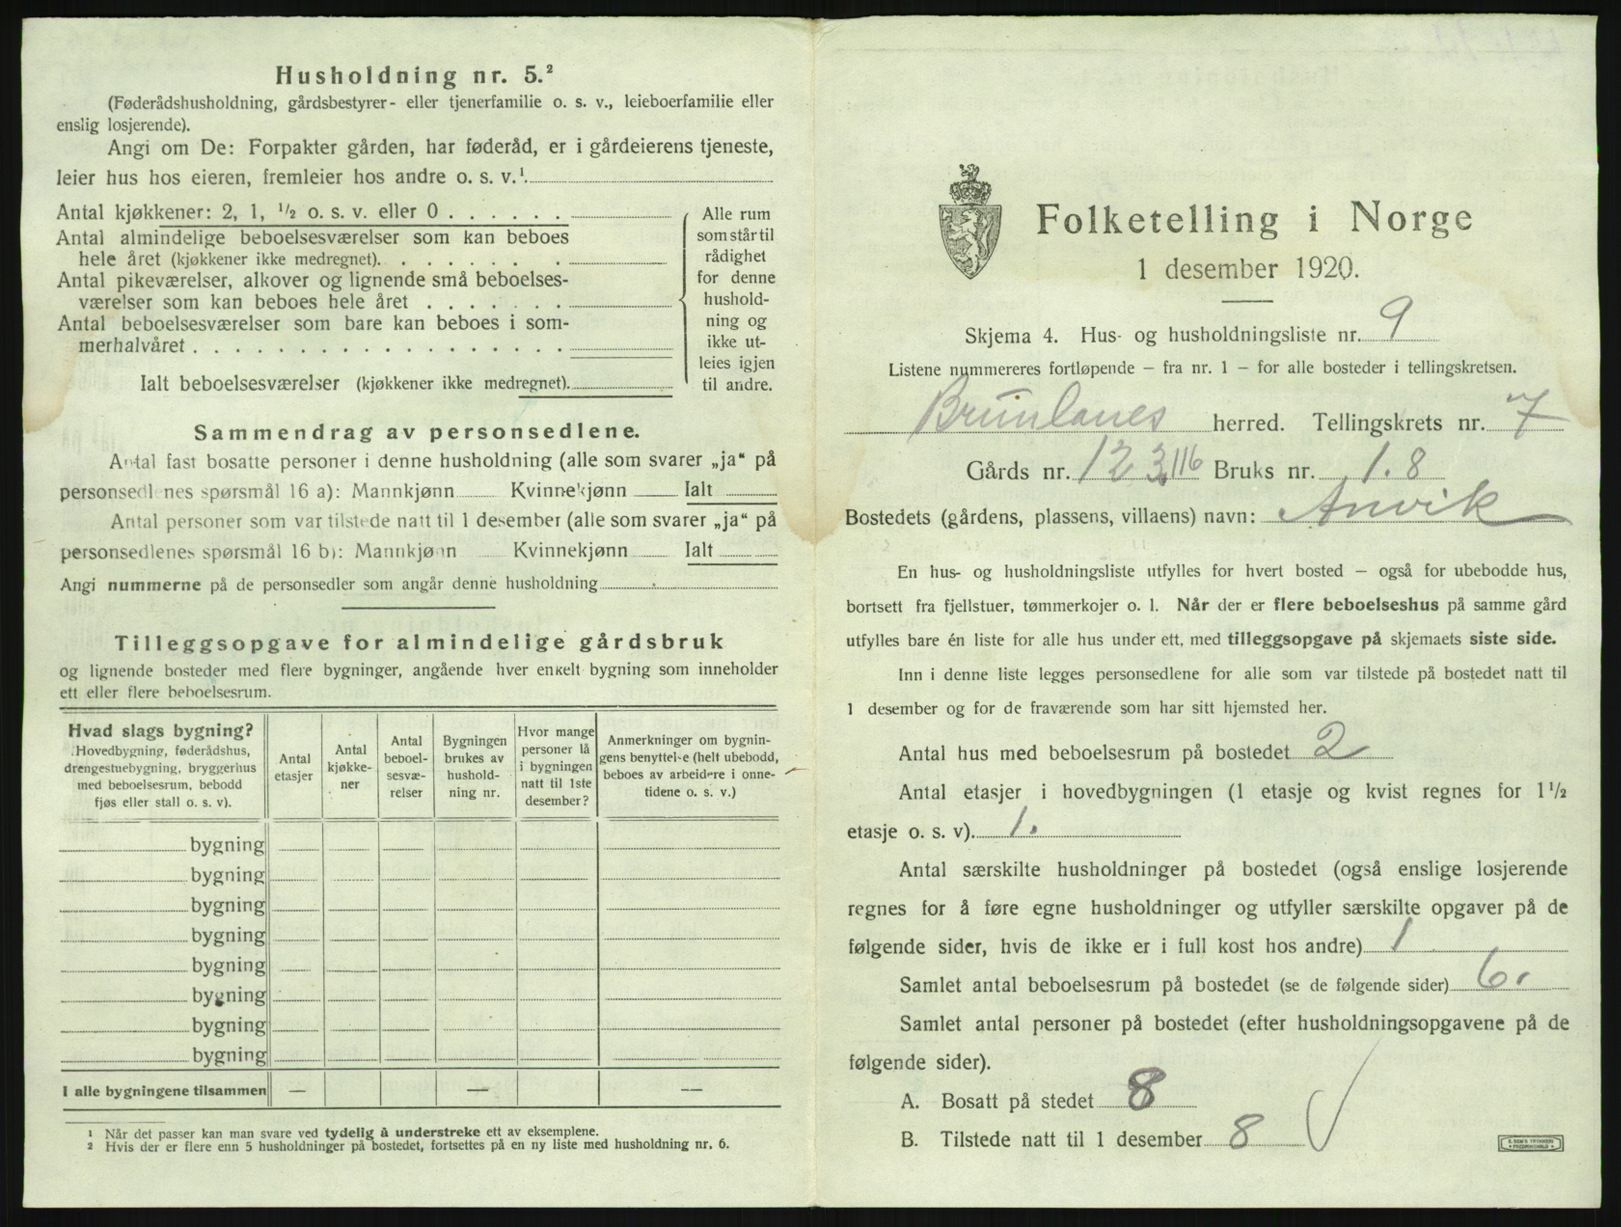 Husholdning nr. 5.²
(Føderådshusholdning, gårdsbestyrer- eller tjenerfamilie o. s. v., leieboerfamilie eller
enslig losjerende).
Angi om De: Forpakter gården, har føderåd, er i gårdeierens tjeneste,
leier hus hos eieren, fremleier hos andre o. s. v.¹
Antal kjøkkener: 2, 1, ½ o. s. v. eller 0 . . . . . .
Antal almindelige beboelsesværelser som kan beboes
hele året (kjøkkener ikke medregnet). . . . . . . .
Antal pikeværelser, alkover og lignende små beboelses-
værelser som kan beboes hele året . . . . . . .
Antal beboelsesværelser som bare kan beboes i som-
merhalvåret . . . . . . . . . . . . . . . . . .
Ialt beboelsesværelser (kjøkkener ikke medregnet).
Alle rum
som står til
rådighet
for denne
hushold-
ning og
ikke ut-
leies igjen
til andre.
Sammendrag av personsedlene.
Antal fast bosatte personer i denne husholdning (alle som svarer „ja“ på
personsedlenes spørsmål 16 a): Mannkjønn Kvinnekjønn Ialt
Antal personer som var tilstede natt til 1 desember (alle som svarer „ja“ på
personsedlenes spørsmål 16 b): Mannkjønn Kvinnekjønn Ialt
Angi nummerne på de personsedler som angår denne husholdning
Tilleggsopgave for almindelige gårdsbruk
og lignende bosteder med flere bygninger, angående hver enkelt bygning som inneholder
ett eller flere beboelsesrum.
Hvad slags bygning?
(Hovedbygning, føderådshus,
drengestuebygning, bryggerhus
med beboelsesrum, bebodd
fjøs eller stall o. s. v).
Antal
etasjer
Antal
kjøkke-
ner
Antal
beboel-
sesvæ-
relser
Bygningen
brukes av
hushold-
ning nr.
Hvor mange
personer lå
i bygningen
natt til 1ste
desember?
Anmerkninger om bygnin-
gens benyttelse (helt ubebodd,
beboes av arbeidere i onne-
tidene o. s. v.)
bygning
bygning
bygning
bygning
bygning
bygning
bygning
bygning
I alle bygningene tilsammen — — —
¹ Når det passer kan man svare ved tydelig å understreke ett av eksemplene.
² Hvis der er flere enn 5 husholdninger på bostedet, fortsettes på en ny liste med husholdning nr. 6.
Folketelling i Norge
1 desember 1920.
Skjema 4. Hus- og husholdningsliste nr. 9
Listene nummereres fortløpende — fra nr. 1 — for alle bosteder i tellingskretsen.
Brunlanes herred. Tellingskrets nr. 7
Gårds nr. 123, 116 Bruks nr. 1. 8
Bostedets (gårdens, plassens, villaens) navn: Anvik
En hus- og husholdningsliste utfylles for hvert bosted — også for ubebodde hus,
bortsett fra fjellstuer, tømmerkojer o. l. Når der er flere beboelseshus på samme gård
utfylles bare én liste for alle hus under ett, med tilleggsopgave på skjemaets siste side.
Inn i denne liste legges personsedlene for alle som var tilstede på bostedet natt til
1 desember og for de fraværende som har sitt hjemsted her.
Antal hus med beboelsesrum på bostedet 2
Antal etasjer i hovedbygningen (1 etasje og kvist regnes for 1½
etasje o. s. v). 1.
Antal særskilte husholdninger på bostedet (også enslige losjerende
regnes for å føre egne husholdninger og utfyller særskilte opgaver på de
følgende sider, hvis de ikke er i full kost hos andre) 1
Samlet antal beboelsesrum på bostedet (se de følgende sider) 6.
Samlet antal personer på bostedet (efter husholdningsopgavene på de
følgende sider).
A. Bosatt på stedet 8
B. Tilstede natt til 1 desember 8